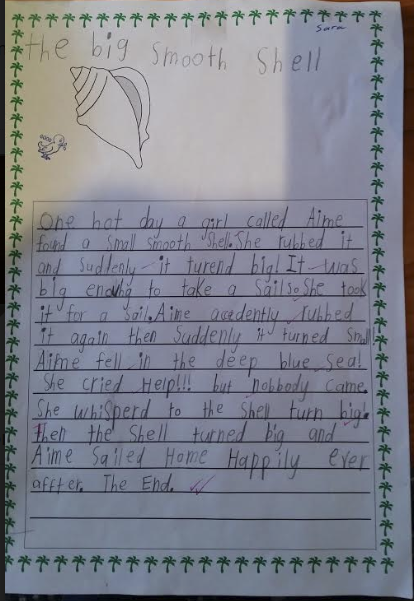 Sara
the big smooth Shell
One hot day a girl called Aime
found a small smooth shell. She rubbed it
and suddenly it turend big! It was
big enough to take a sail so She took
it for a sail. Aime accedently rubbed
it again then Suddenly it turned small
Aime fell in the deep blue Sea!
She cried Help!!! but nobbody came.
She whisperd to the Shell turn big.
then the Shell turned big and
Aime Sailed Home Happily ever
affter. The End.